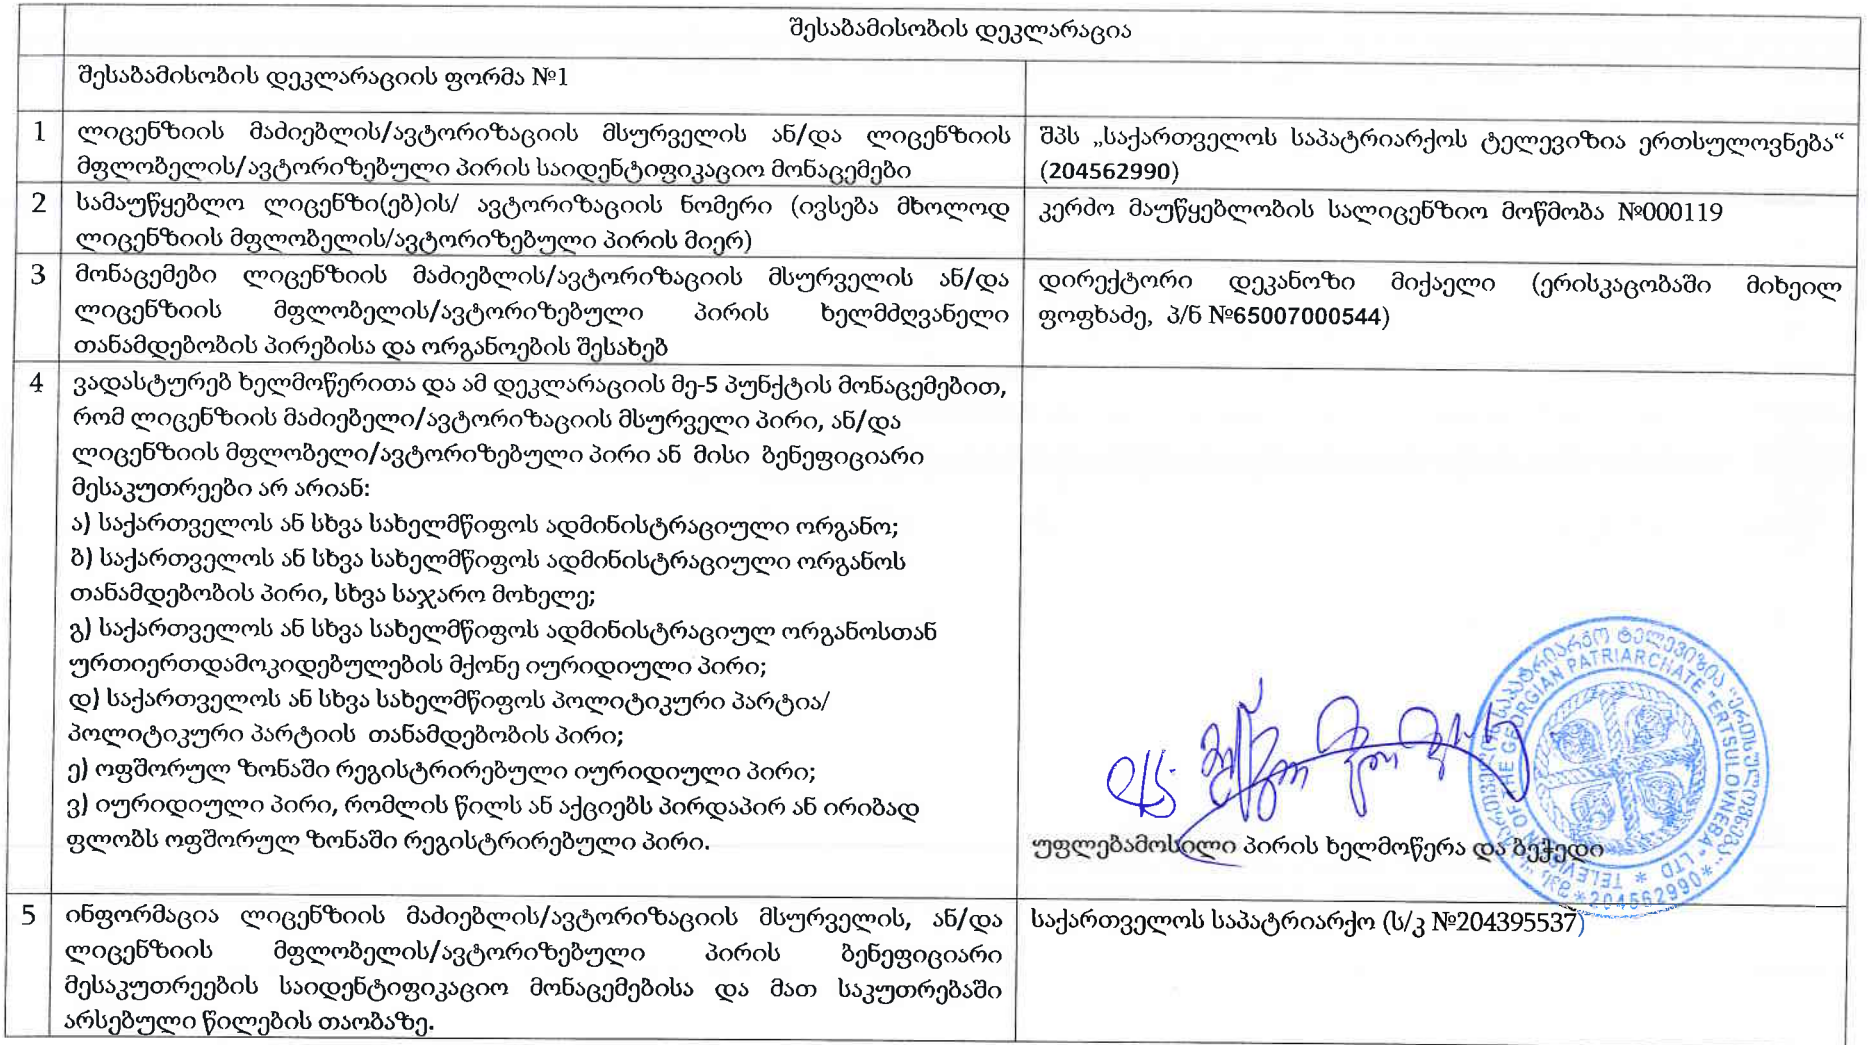 შესაბამისობის დეკლარაცია
შესაბამისობის დეკლარაციის ფორმა №1
1 ლიცენზიის მაძიებლის/ავტორიზაციის მსურველის ან/და ლიცენზიის
მფლობელის/ავტორიზებული პირის საიდენტიფიკაციო მონაცემები
შპს „საქართველოს საპატრიარქოს ტელევიზია ერთსულოვნება“
(204562990)
2 სამაუწყებლო ლიცენზი(ებ)ის/ ავტორიზაციის ნომერი (ივსება მხოლოდ
ლიცენზიის მფლობელის/ავტორიზებული პირის მიერ)
კერძო მაუწყებლობის სალიცენზიო მოწმობა №000119
3 მონაცემები ლიცენზიის მაძიებლის/ავტორიზაციის მსურველის ან/და
ლიცენზიის მფლობელის/ავტორიზებული პირის ხელმძღვანელი
თანამდებობის პირებისა და ორგანოების შესახებ
დირექტორი დეკანოზი მიქაელი (ერისკაცობაში მიხეილ
ფოფხაძე, პ/ნ №65007000544)
4 ვადასტურებ ხელმოწერითა და ამ დეკლარაციის მე-5 პუნქტის მონაცემებით,
რომ ლიცენზიის მაძიებელი/ავტორიზაციის მსურველი პირი, ან/და
ლიცენზიის მფლობელი/ავტორიზებული პირი ან მისი ბენეფიციარი
მესაკუთრეები არ არიან:
ა) საქართველოს ან სხვა სახელმწიფოს ადმინისტრაციული ორგანო;
ბ) საქართველოს ან სხვა სახელმწიფოს ადმინისტრაციული ორგანოს
თანამდებობის პირი, სხვა საჯარო მოხელე;
გ) საქართველოს ან სხვა სახელმწიფოს ადმინისტრაციულ ორგანოსთან
ურთიერთდამოკიდებულების მქონე იურიდიული პირი;
დ) საქართველოს ან სხვა სახელმწიფოს პოლიტიკური პარტია/
პოლიტიკური პარტიის თანამდებობის პირი;
ე) ოფშორულ ზონაში რეგისტრირებული იურიდიული პირი;
ვ) იურიდიული პირი, რომლის წილს ან აქციებს პირდაპირ ან ირიბად
ფლობს ოფშორულ ზონაში რეგისტრირებული პირი.
უფლებამოსილი პირის ხელმოწერა და ბეჭედი
TELEVISION OF THE GEORGIAN PATRIARCHATE "ERTSULOVNEBA" LTD
*204562990*
5 ინფორმაცია ლიცენზიის მაძიებლის/ავტორიზაციის მსურველის, ან/და
ლიცენზიის მფლობელის/ავტორიზებული პირის ბენეფიციარი
მესაკუთრეების საიდენტიფიკაციო მონაცემებისა და მათ საკუთრებაში
არსებული წილების თაობაზე.
საქართველოს საპატრიარქო (ს/კ №204395537)